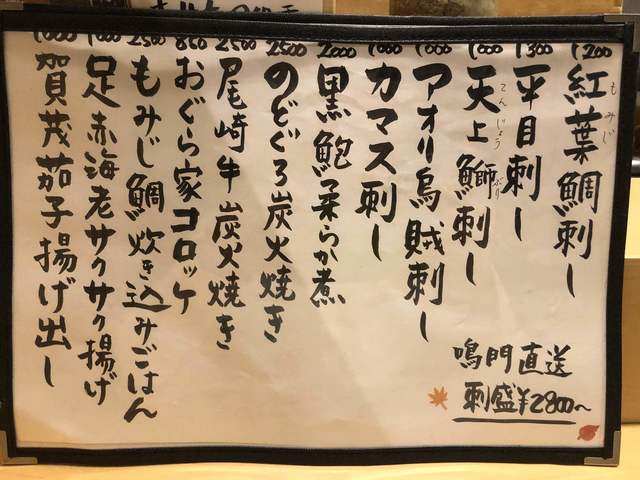 1200 紅葉鯛刺し
もみじ
1300 平目刺し
1000 天上鰤刺し
てんじょうぶり
1000 アオリ烏賊刺し
1000 カマス刺し
2000 黒鮑柔らか煮
2500 のどぐろ炭火焼き
2500 尾崎牛炭火焼き
850 おぐら家コロッケ
2500 もみじ鯛炊き込みごはん
1000 足赤海老サクサク揚げ
1000 賀茂茄子揚げ出し
鳴門直送
刺盛¥2800〜